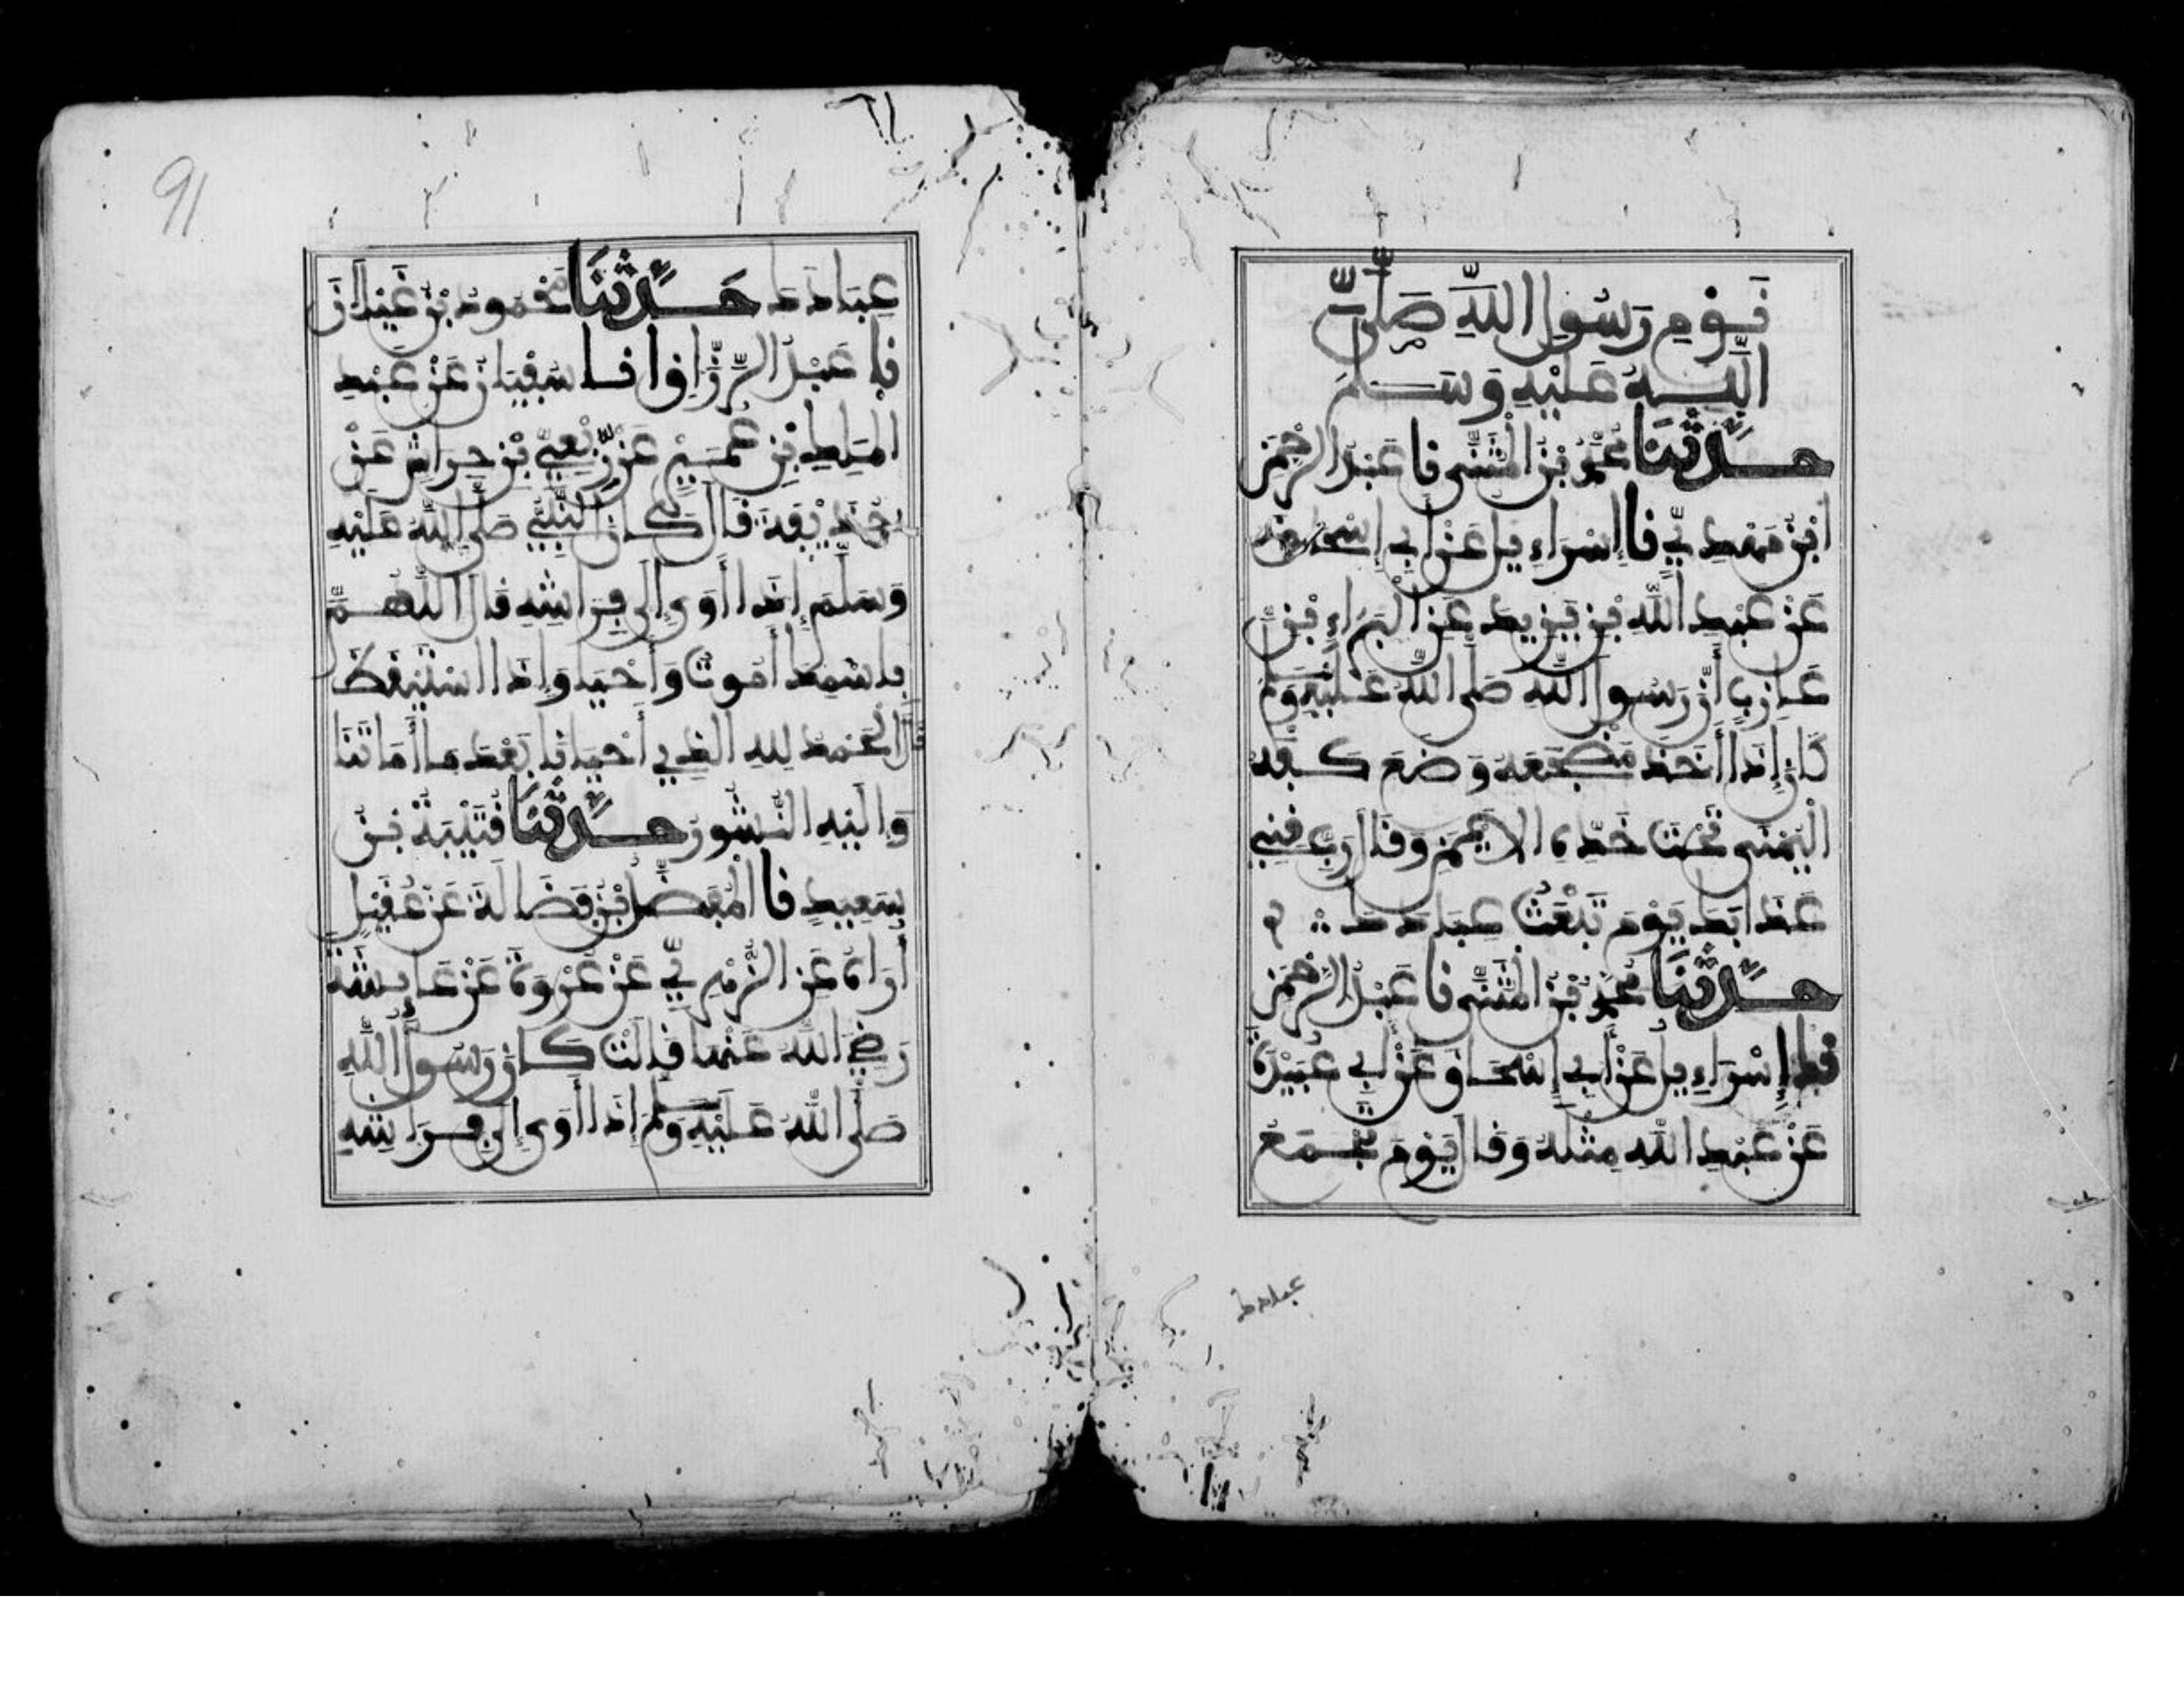 نَوْمِ رَسُولِ اللَّهِ صَلَّى
اللَّهُ عَلَيْهِ وَسَلَّمَ
حَدَّثَنَا مُحَمَّدُ بْنُ الْمُثَنَّى نا عَبْدُ الرَّحْمَنِ
ابْنُ مَهْدِيٍّ نا إِسْرَاءِيلُ عَنْ أَبِي إِسْحَاقَ
عَنْ عَبْدِ اللَّهِ بْنِ يَزِيدَ عَنِ الْبَرَاءِ بْنِ
عَازِبٍ أَنَّ رَسُولَ اللَّهِ صَلَّى اللَّهُ عَلَيْهِ وَسَلَّمَ
كَانَ إِذَا أَخَذَ مَضْجَعَهُ وَضَعَ كَفَّهُ
الْيُمْنَى تَحْتَ خَدِّهِ الْأَيْمَنِ وَقَالَ رَبِّ قِنِي
عَذَابَكَ يَوْمَ تَبْعَثُ عِبَادَكَ
حَدَّثَنَا مُحَمَّدُ بْنُ الْمُثَنَّى نا عَبْدُ الرَّحْمَنِ
نا إِسْرَاءِيلُ عَنْ أَبِي إِسْحَاقَ عَنْ أَبِي عُبَيْدَةَ
عَنْ عَبْدِ اللَّهِ مِثْلَهُ وَقَالَ يَوْمَ تَجْمَعُ
عبادك
91
عِبَادَكَ حَدَّثَنَا مَحْمُودُ بْنُ غَيْلَانَ
نا عَبْدُ الرَّزَّاقِ انا سُفْيَانُ عَنْ عَبْدِ
الْمَلِكِ بْنِ عُمَيْرٍ عَنْ رِبْعِيِّ بْنِ حِرَاشٍ عَنْ
حُذَيْفَةَ قَالَ كَانَ النَّبِيُّ صَلَّى اللَّهُ عَلَيْهِ
وَسَلَّمَ إِذَا أَوَى إِلَى فِرَاشِهِ قَالَ اللَّهُمَّ
بِاسْمِكَ أَمُوتُ وَأَحْيَا وَإِذَا اسْتَيْقَظَ
قَالَ الْحَمْدُ لِلهِ الَّذِي أَحْيَانَا بَعْدَ مَا أَمَاتَنَا
وَإِلَيْهِ النُّشُورُ حَدَّثَنَا قُتَيْبَةُ بْنُ
سَعِيدٍ نا الْمُفَضَّلُ بْنُ فَضَالَةَ عَنْ عُقَيْلٍ
أُرَاهُ عَنِ الزُّهْرِيِّ عَنْ عُرْوَةَ عَنْ عَايِشَةَ
رَضِيَ اللَّهُ عَنْهَا قَالَتْ كَانَ رَسُولُ اللَّهِ
صَلَّى اللَّهُ عَلَيْهِ وَسَلَّمَ إِذَا أَوَى إِلَى فِرَاشِهِ